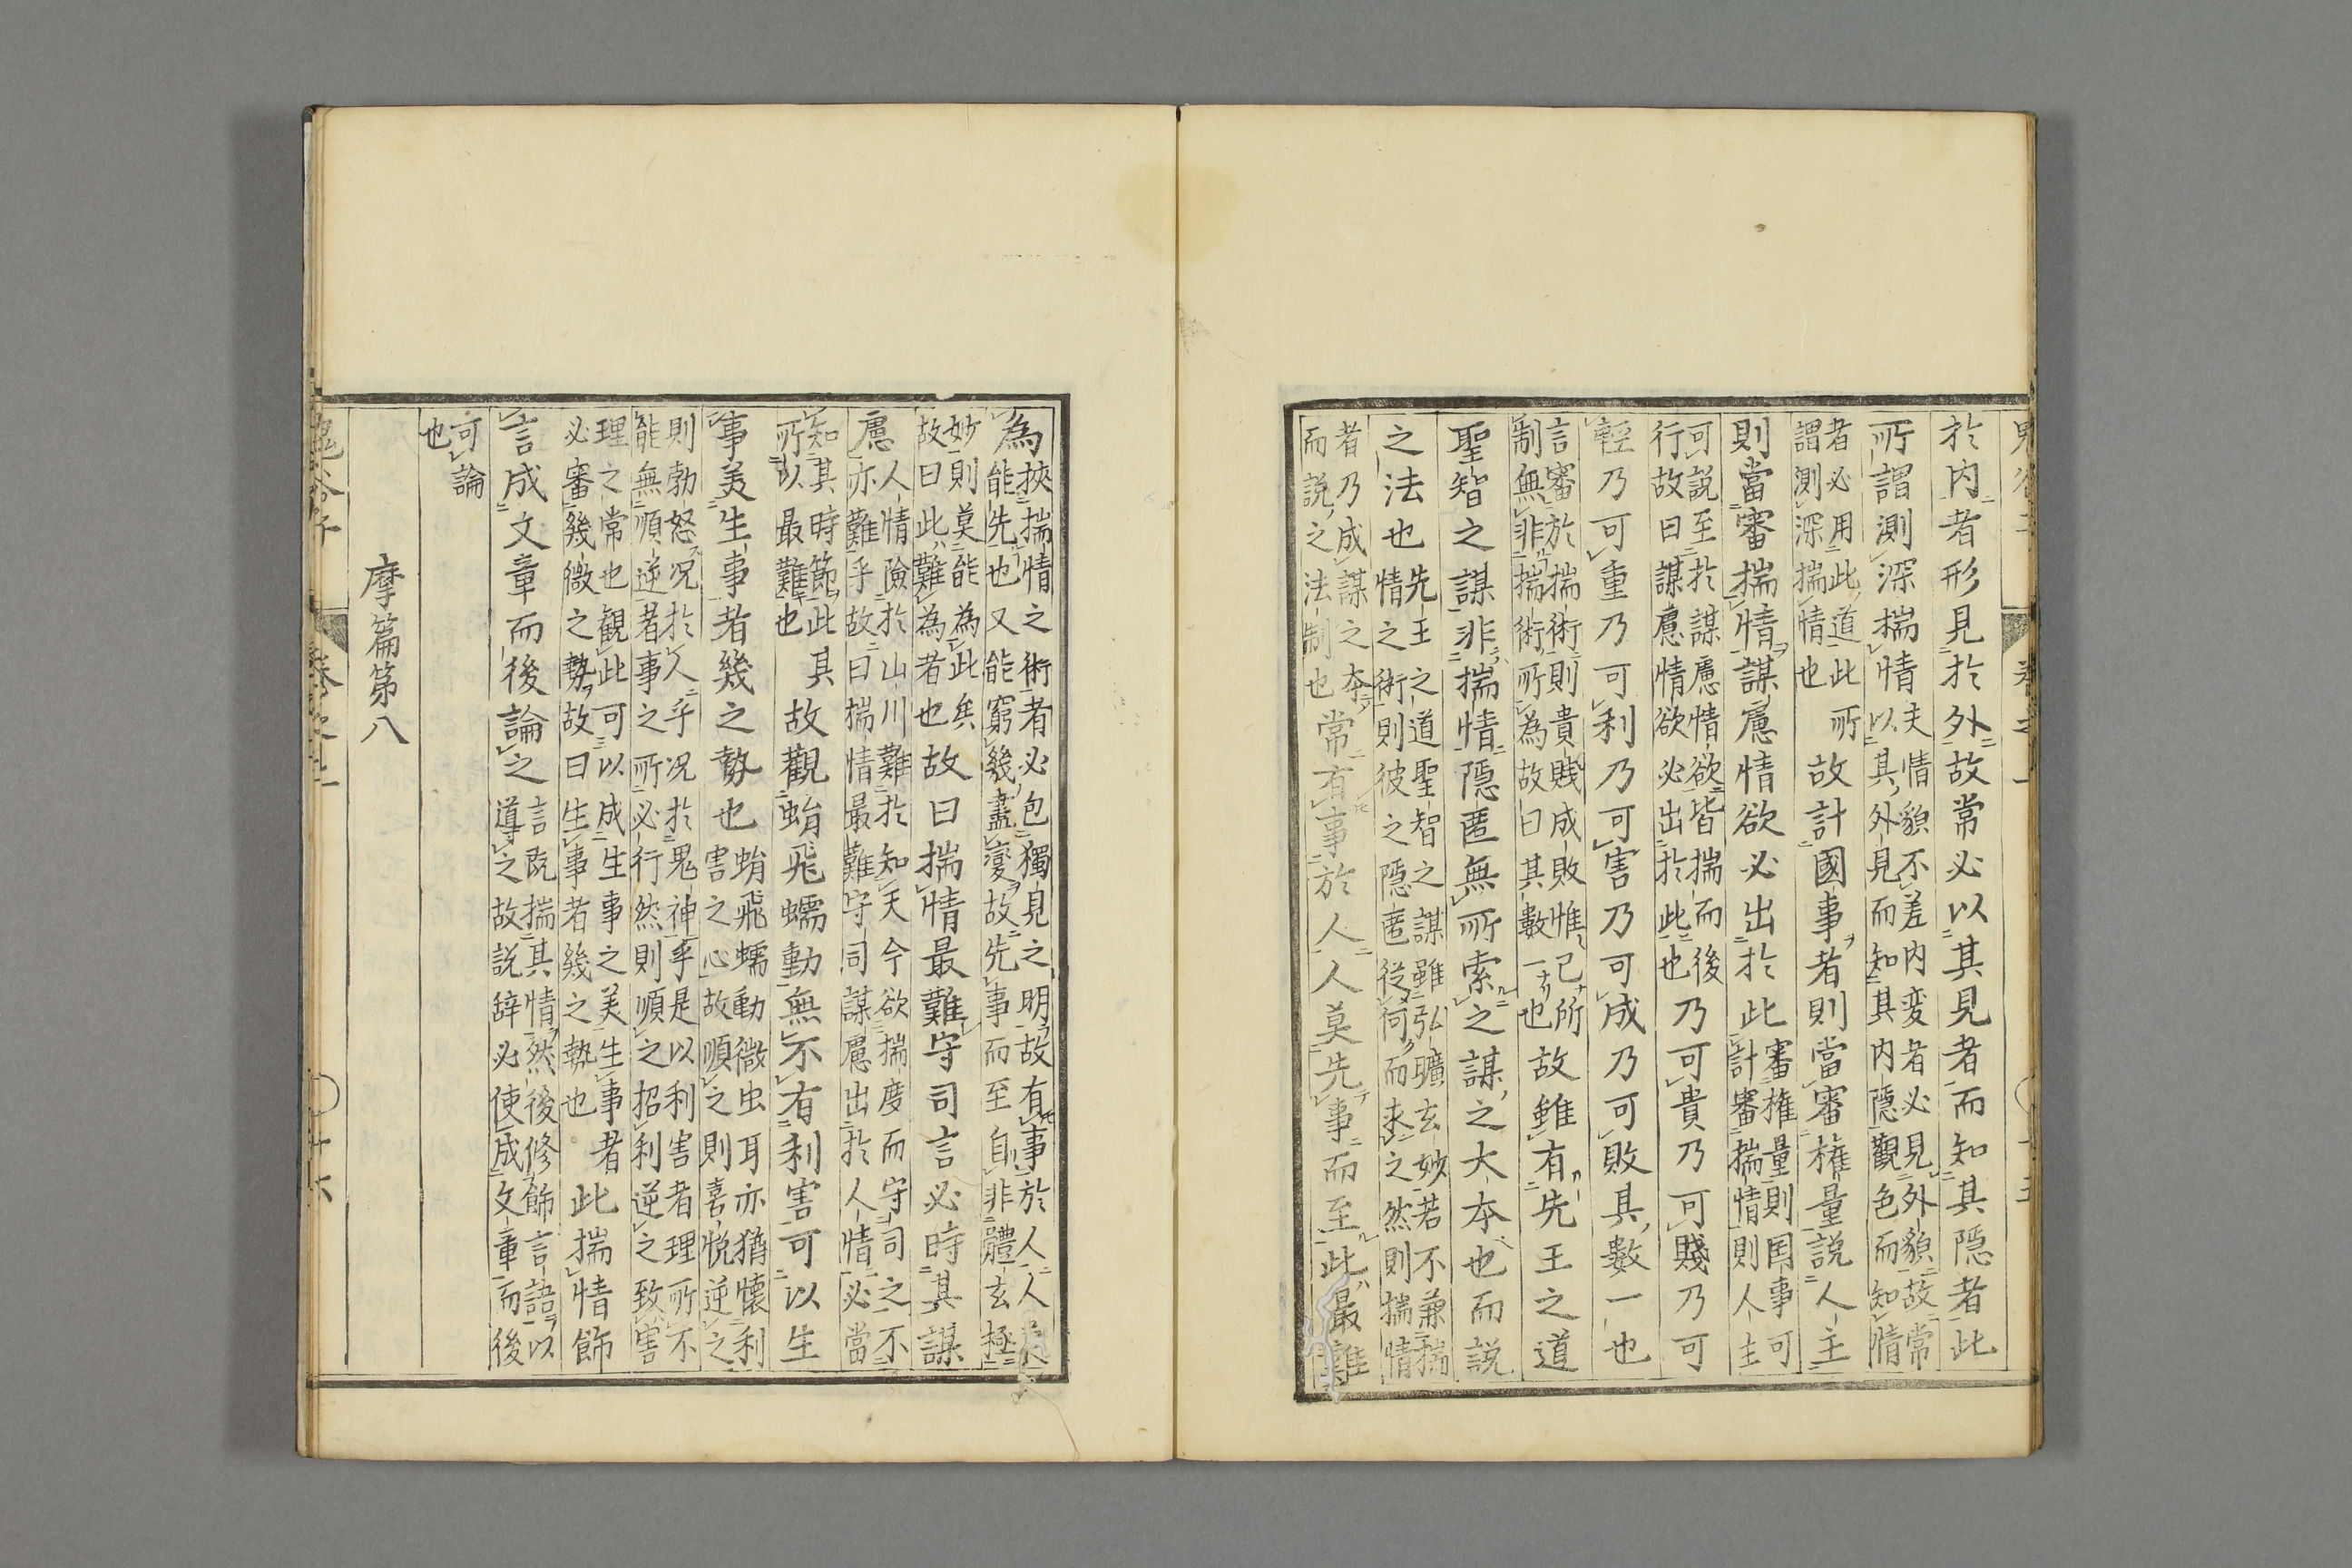 於内者形見於外故常必以其見者而知其隠者此
所謂測深揣情夫情貌不差内变者必見外貌故常以其外見而知其内隠觀色而知情
者必用此道此所謂測深揣情也故計國事者則當審権量說人主
則當審揣情謀慮情欲必出於此審権量則国事可計審揣情則人主
可說至於謀慮情欲皆揣而後行故曰謀慮情欲必出於此也乃可貴乃可賤乃可
輕乃可重乃可利乃可害乃可成乃可敗其數一也
言審於揣術則貴賎成敗惟己所制無非揣術所為故曰其數一也故雖有先王之道
聖智之謀非揣情隠匿無所索之謀之大本也而説
之法也先王之道聖智之謀雖弘曠玄妙若不兼揣情之術則彼之隠匿從何而求之然則揣情
者乃成謀之本而説之法制也常有事於人人莫先事而至此最難
為挾揣情之術者必包獨見之明故有事於人人能先也又能窮幾盡変故先事而至自非體玄極
妙則莫能為此矣故曰此難為者也故曰揣情最難守司言必時其謀
慮人情險於山川難於知天今欲揣度而守司之不亦難乎故曰揣情最難守司謀慮出於人情必當
知其時節此其所以最難也故觀蜎飛蠕動無不有利害可以生
事美生事者幾之勢也蜎飛蠕動微虫耳亦猶懷利害之心故順之則喜悦逆之
則勃怒况於人乎况於鬼神乎是以利害者理所不能無順逆者事之所必行然則順之招利逆之致害
理之常也観此可以成生事之美生事者必審幾微之勢故曰生事者幾之勢也此揣情飾
言成文章而後論之言既揣其情然後修飾言語以導之故説辞必使成文章而後
可論也
摩篇第八